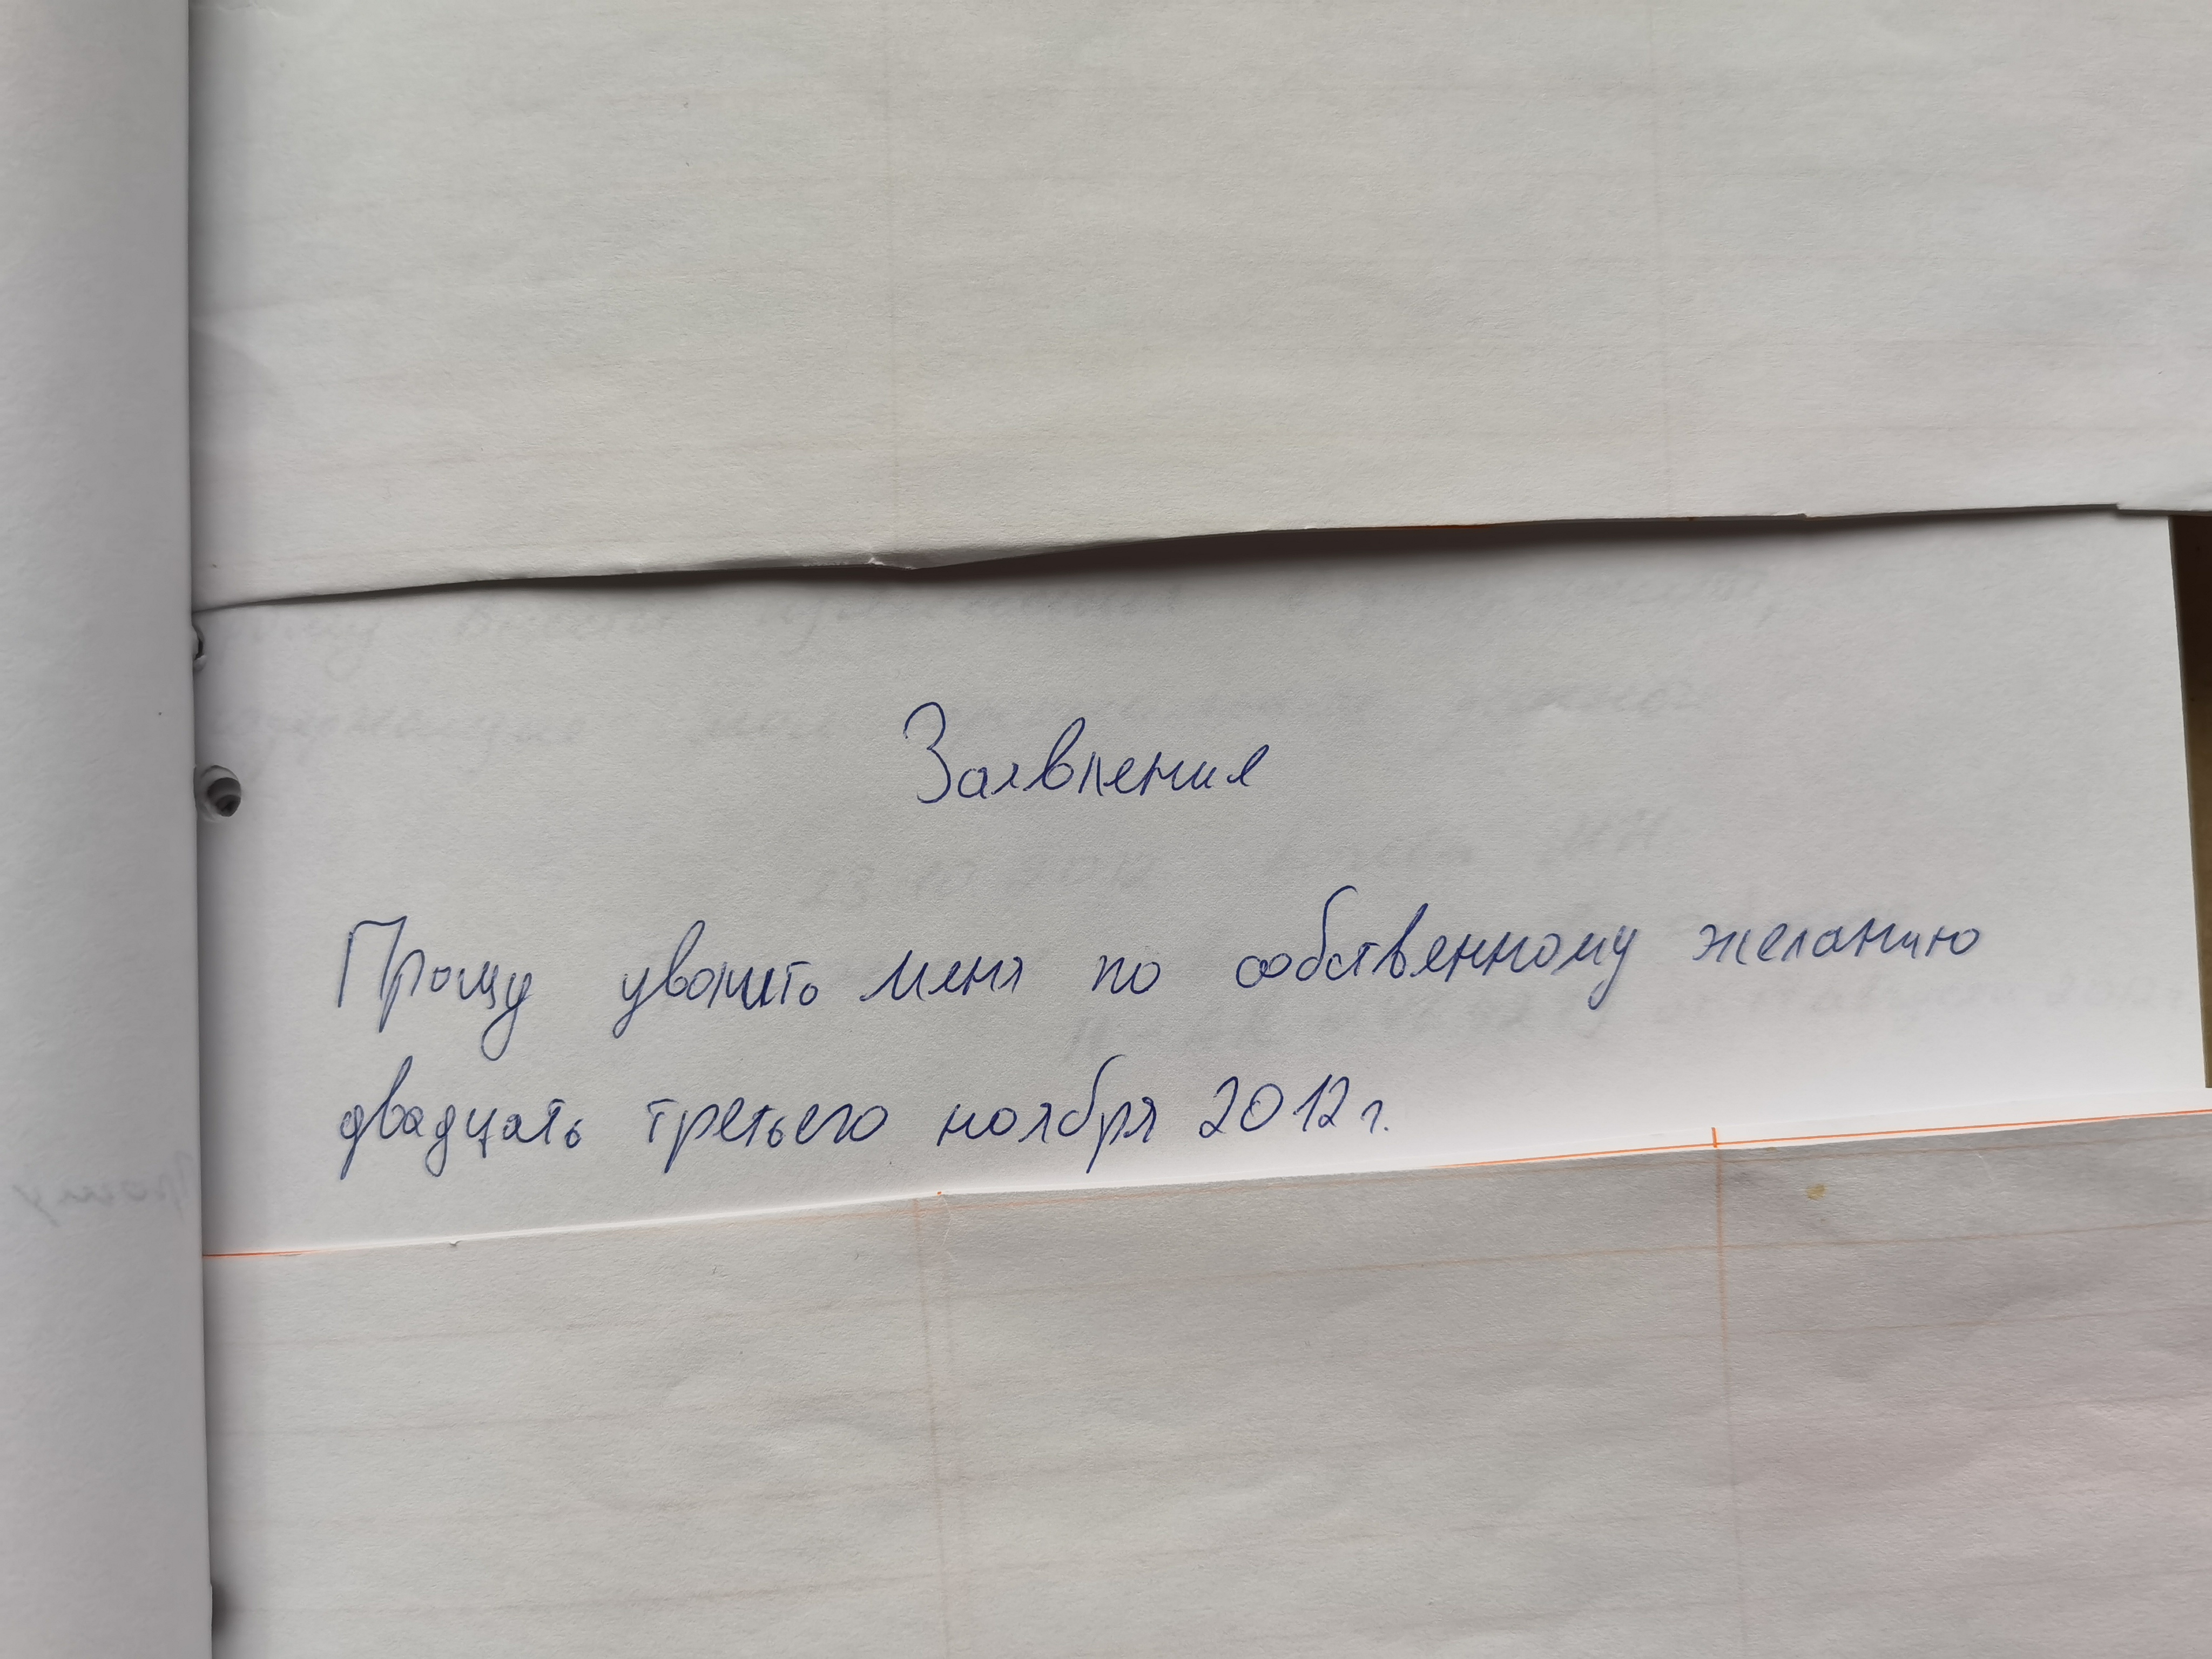 Заявление
Прошу уволить меня по собственному желанию
двадцать третьего ноября 2012 г.